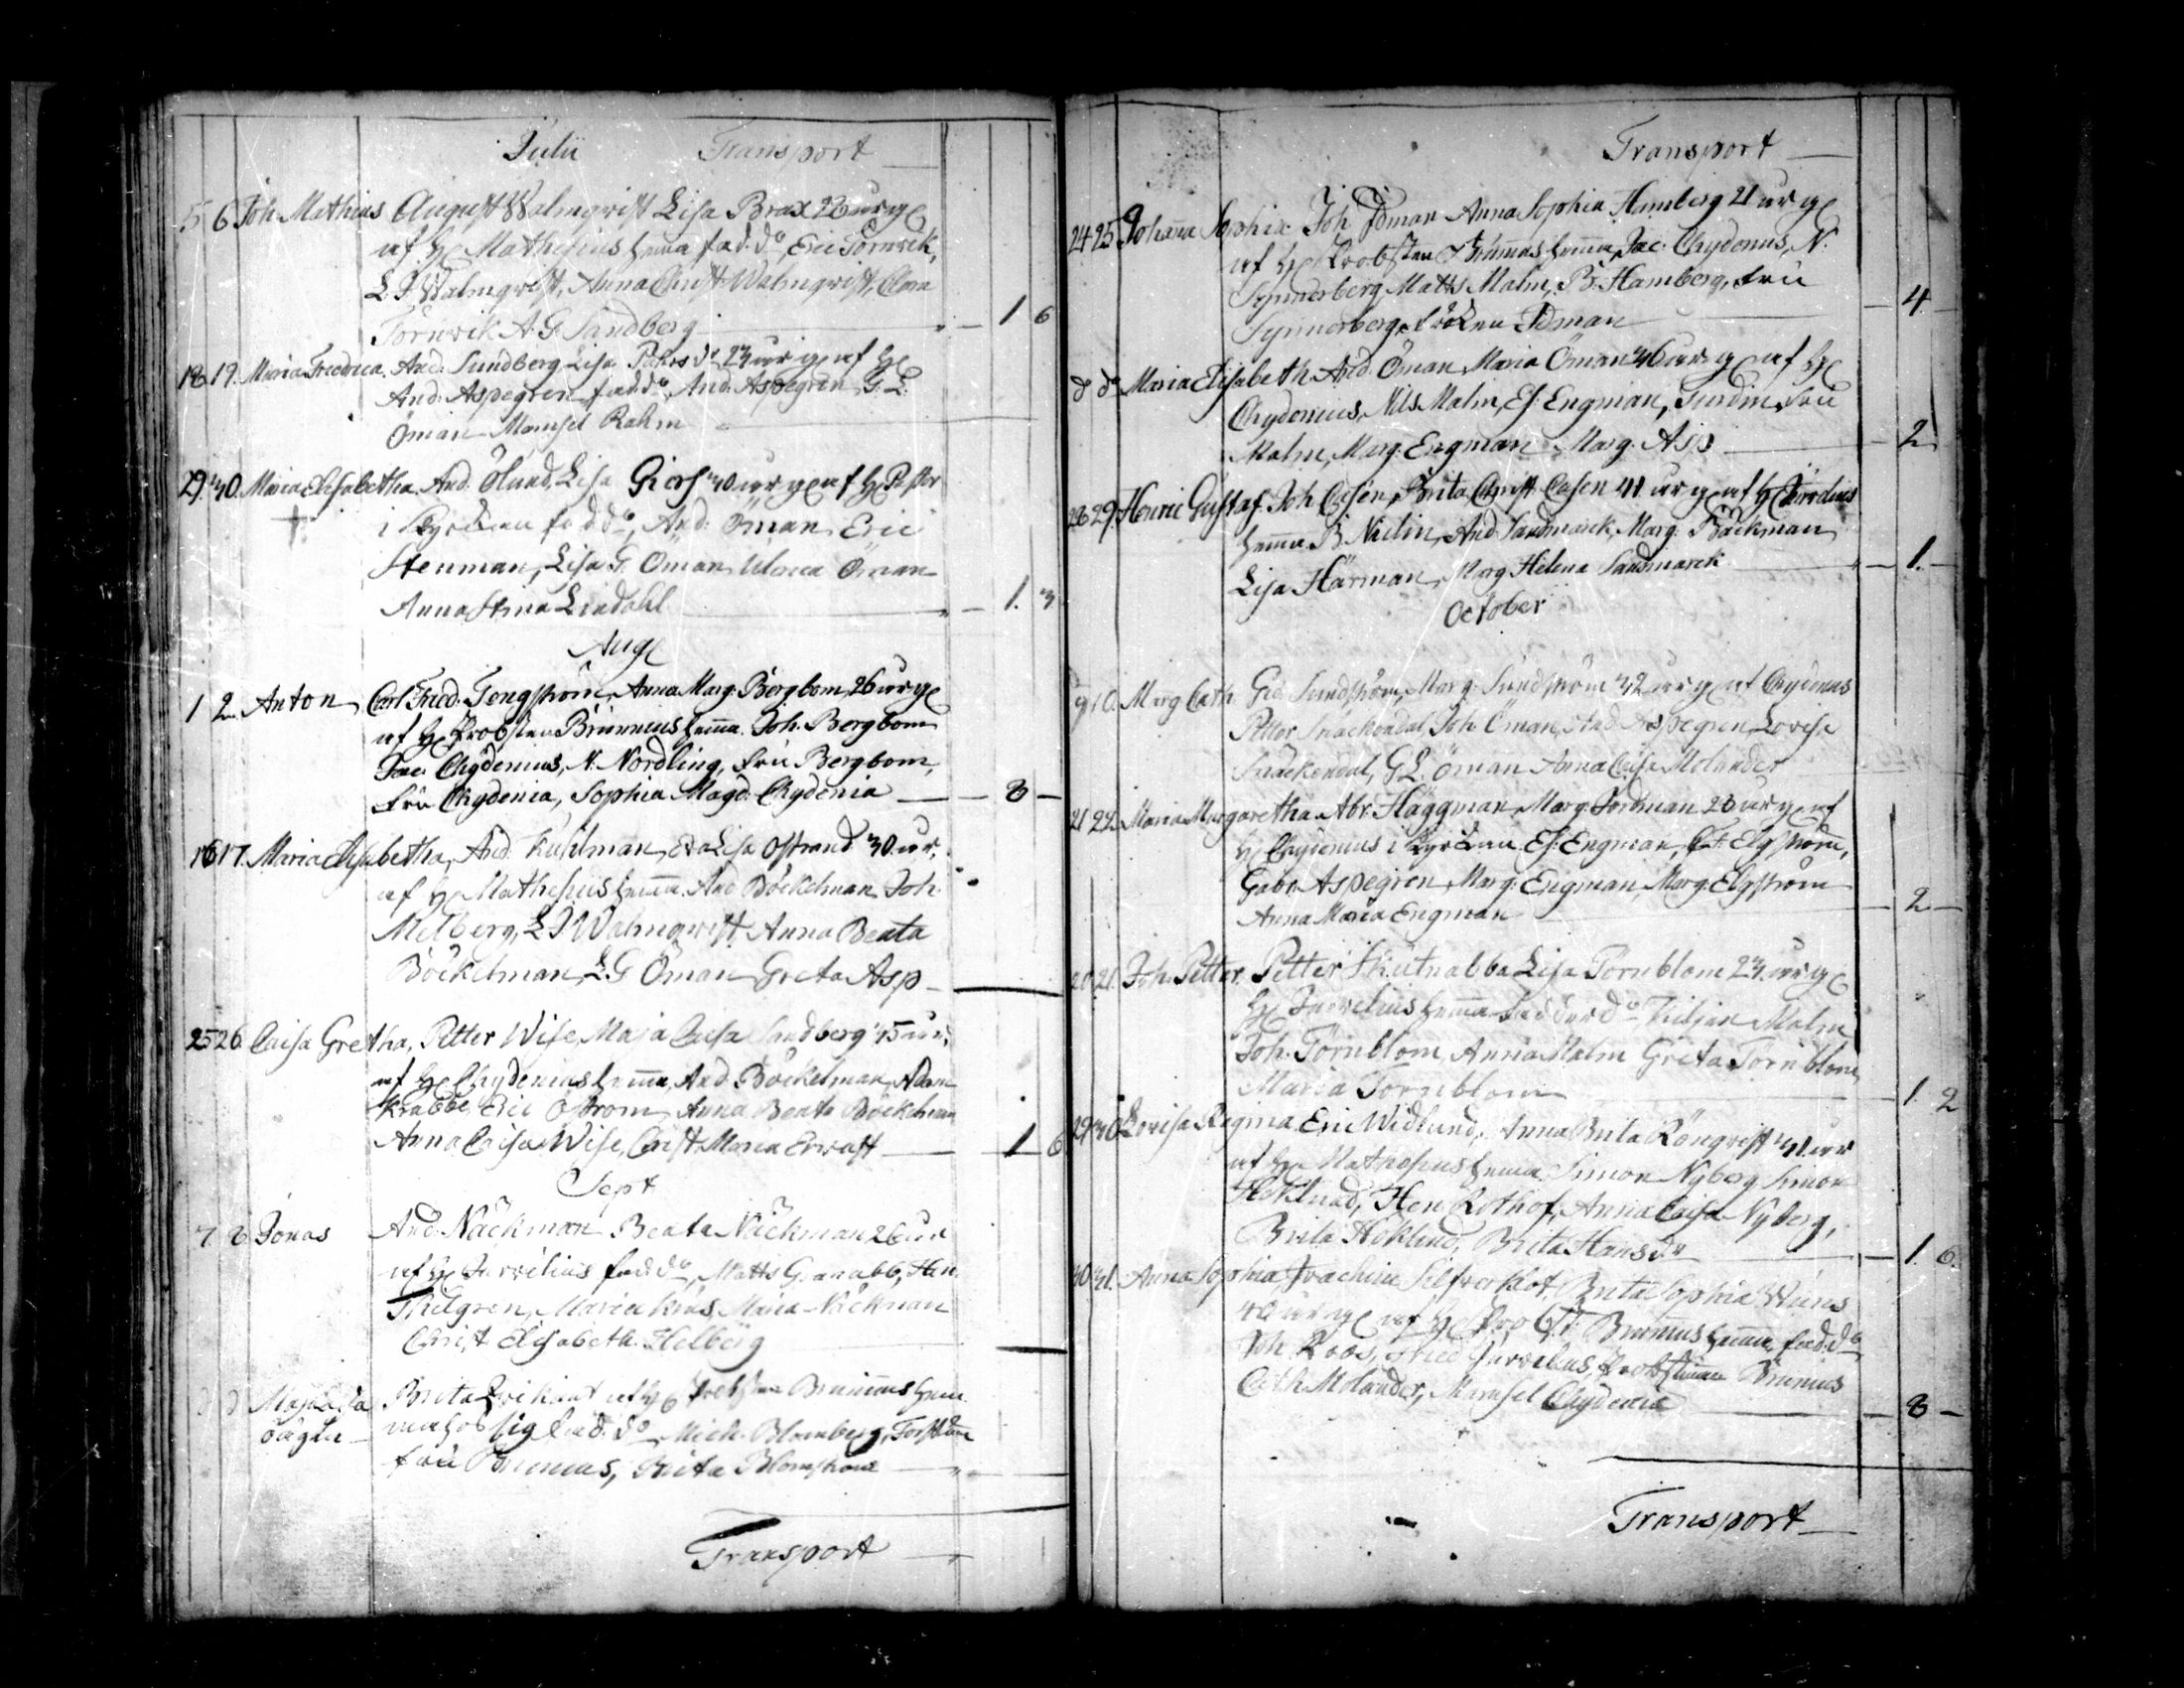 Julii Transport
5 6 Joh. Mathias August Walmqvist Lisa Brax 26 år g
af H Mathesius hema fad. do, Eric Törnvik,
L J Walmqvist, Anna Christ Walmqvist, Clara
Törnvik A. G. Sandberg 1 6
18 19. Maria Fredrica. And. Sundberg Lisa 23 år g af H
And. Aspegren fad do, And. Aspegren G. L.
Öman Mamsel Rahm
29. 30. Maria Elisabetha. And. Ölund, Lisa Giers 30 år g af H Pastor
i Kyrckan fad do, And. Öman Eric
Stenman, Lisa G. Öman Ulrica Öman
Anna Stina Lindahl 1. 3
Aug
1 2. Anton Carl Fred. Tengström, Anna Marg. Bergbom, 26 år g
af H Probsten Brunnius hema. Joh. Bergbom
Jac. Chydenius, N. Nordling, fru Bergbom,
fru Chydenia, Sophia Magd. Chydenia 8
16 17. Maria Elisabetha, And. Kuhlman, Eva Lisa Ostrand 30 år,
af H Mathesius hema. And Böckelman Joh
Melberg, L J Walmqvist, Anna Beata
Böckelman, L. G Öman Greta Asp
25 26 Caisa Gretha. Petter Wise, Maja Caisa Sandberg 35 år,
af H Chydenius hema, And. Böckelman, Adam
Krabbe Eric Oström, Anna Beata Böckelman
Anna Caisa Wise, Christ. Maria Erwast 1 6
Sept
7. 8 Jonas And. Näckman Beata Näckman 26 år
af H Jurvelius fad. do, Matts Granabb, Hen.
Thilgren, Maria Krås, Maria Näckman
Christ Elisabeth Helberg
d d Maja Lisa Brita af H Probsten Brunnius hem
oägta ma hos sig fad. do, Mich. Blomberg,
fru Brunnius, Brita Blomström
Transport

Transport
24 25 Johanna Sophia Joh Idman Anna Sophia Hamberg 21 år g
af H Probsten hemma, Jac. Chydenius, N.
Synnerberg Matts Malm, B. Hamberg, fru
Synnerberg, fröken Idman 4
d do Maria Elisabeth And. Öman Maria Öman 36 år g af H
Chydenius, Nils Malm, Es. Engman, fru
Malm, Marg. Engman Marg. Asp 2
28 29. Henric Gustaf. Joh. Casén, Brita Christ. Casen 41 år g af H Jurvelius
hema. B. Niclin, And Sandmarck, Marg. Bäckman
Lisa Härman, Marg Helena Sandmarck 1.
October
9 10. Marg Cath. Gab. Sundström, Marg. Sundström 32 år g af Chydenius
Petter Snäckendal, Joh Öman, And Aspegren, Lovisa
Snäckendal, G L. Öman Anna Caisa Molander
21 22. Maria Margaretha. Abr. Häggman, Marg. Forsman 28 år g af
H Chydenius i Kyrckan Es. Engman, C F. Elgström,
Gabr. Aspegren, Marg. Engman, Marg. Elgström
Anna Maria Engman 2
20 21. Joh. Petter. Petter Skutnabba Lisa Törnblom 23 år g
H Jurvelius hema fadder do Kilian Malm
Joh. Törnblom, Anna Malm Greta Törnblom,
Maria Törnblom 1. 2
29 30 Lovisa Regina. Eric Widlund, Anna Brita Rönqvist 31 år
af H Mathesius hema Simon Nyberg Simon
Höklund, Hen. Rothof, Anna Caisa Nyberg,
Brita Höklund, Brita Hansdr 1. 6.
30 31. Anna Sophia, Joachim Silfverklot, Brita Sophia Wiens
40 år g af H Probst. Brunnius hema, fad. do
Joh. Roos, Jurvelius, Probstinnan Brunnius
Cath Molander, Mamsel Chydenia 8
Transport